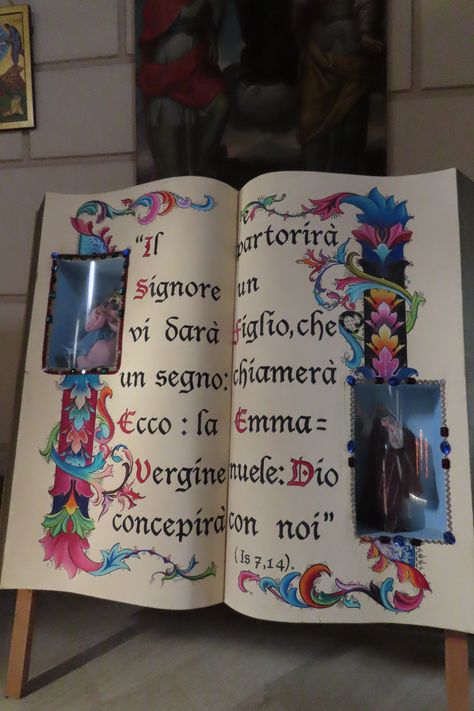 "Il
Signore
vi darà
un segno:
Ecco: la
Vergine
concepirà
e
partorirà
un
figlio, che
chiamerà
Emma=
nuele: Dio
con noi"
(Is 7,14).